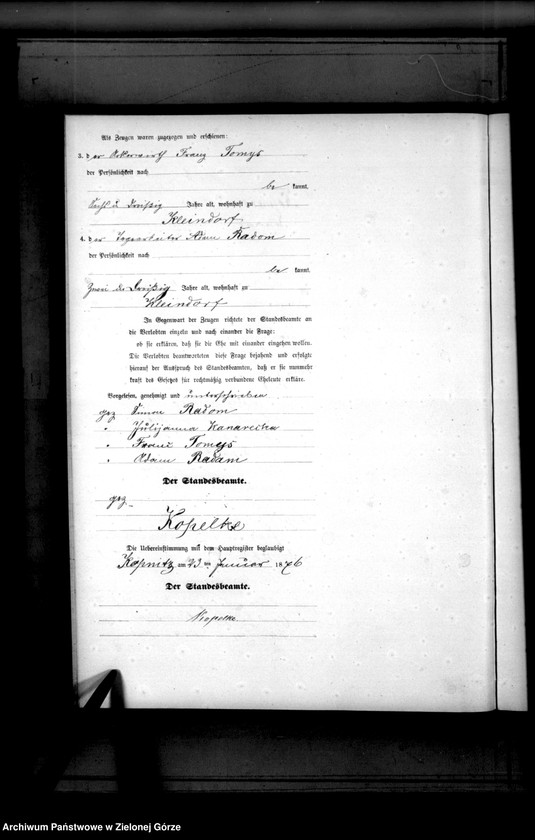 Als Zeugen waren zugezogen und erschienen:
3. der Ackerwirth Franz Tomys
der Persönlichkeit nach
be kannt,
Sechs u Dreißig Jahre alt, wohnhaft zu
Kleindorf
4. der Adam Radom
der Persönlichkeit nach
be kannt,
Zwei Dreißig Jahre alt, wohnhaft zu
Kleindorf
In Gegenwart der Zeugen richtete der Standesbeamte an
die Verlobten einzeln und nach einander die Frage:
ob sie erklären, daß sie die Ehe mit einander eingehen wollen.
Die Verlobten beantworteten diese Frage bejahend und erfolgte
hierauf der Ausspruch des Standesbeamten, daß er sie nunmehr
kraft des Gesetzes für rechtmäßig verbundene Eheleute erkläre.
Vorgelesen, genehmigt und unterschrieben
gez Simon Radom
" Julijanna Kanarecka
" Franz Tomys
" Adam Radam
Der Standesbeamte.
gez
Kopelke
Die Uebereinstimmung mit dem Hauptregister beglaubigt
Kopnitz am 23 ten Januar 1876
Der Standesbeamte.
Kopelke
Archiwum Państwowe w Zielonej Górze